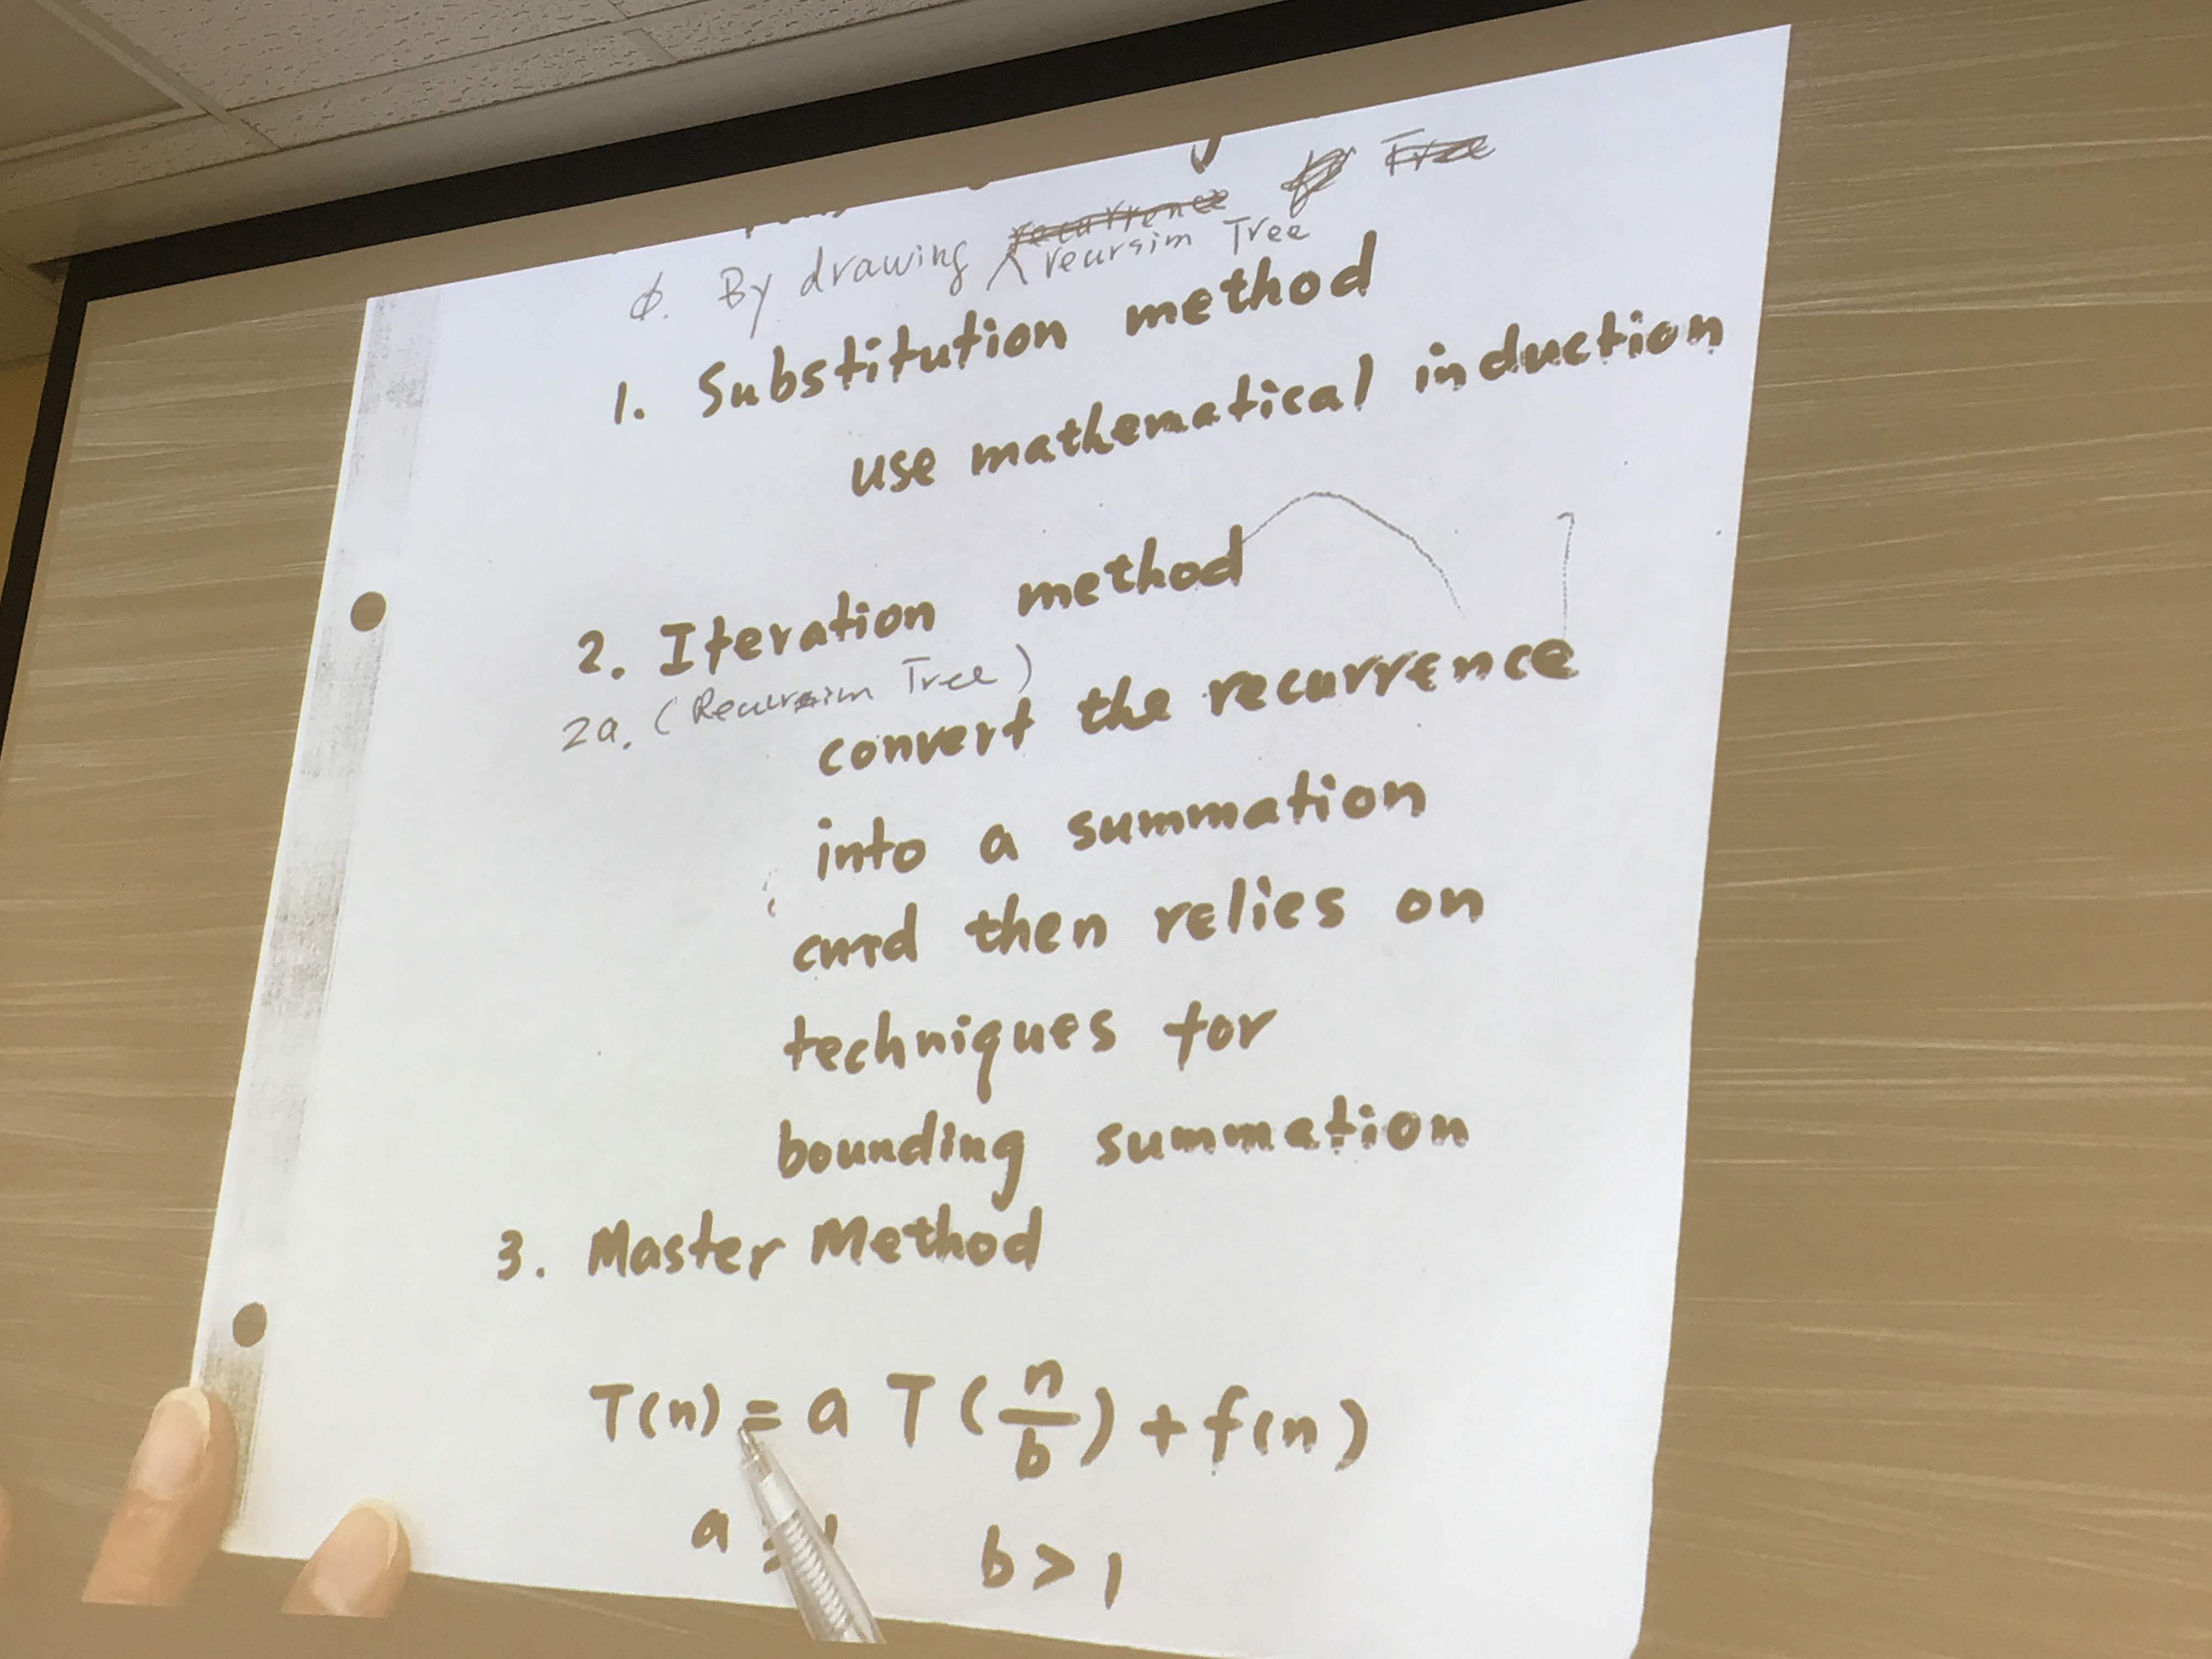 By drawing recursim Tree
1. Substitution method
use mathematical induction
2. Iteration method
2a. (Recursim Tree)
convert the recurrence
into a summation
and then relies on
techniques for
bounding summation
3. Master Method
T(n) = a T(n/b) + f(n)
a b > 1